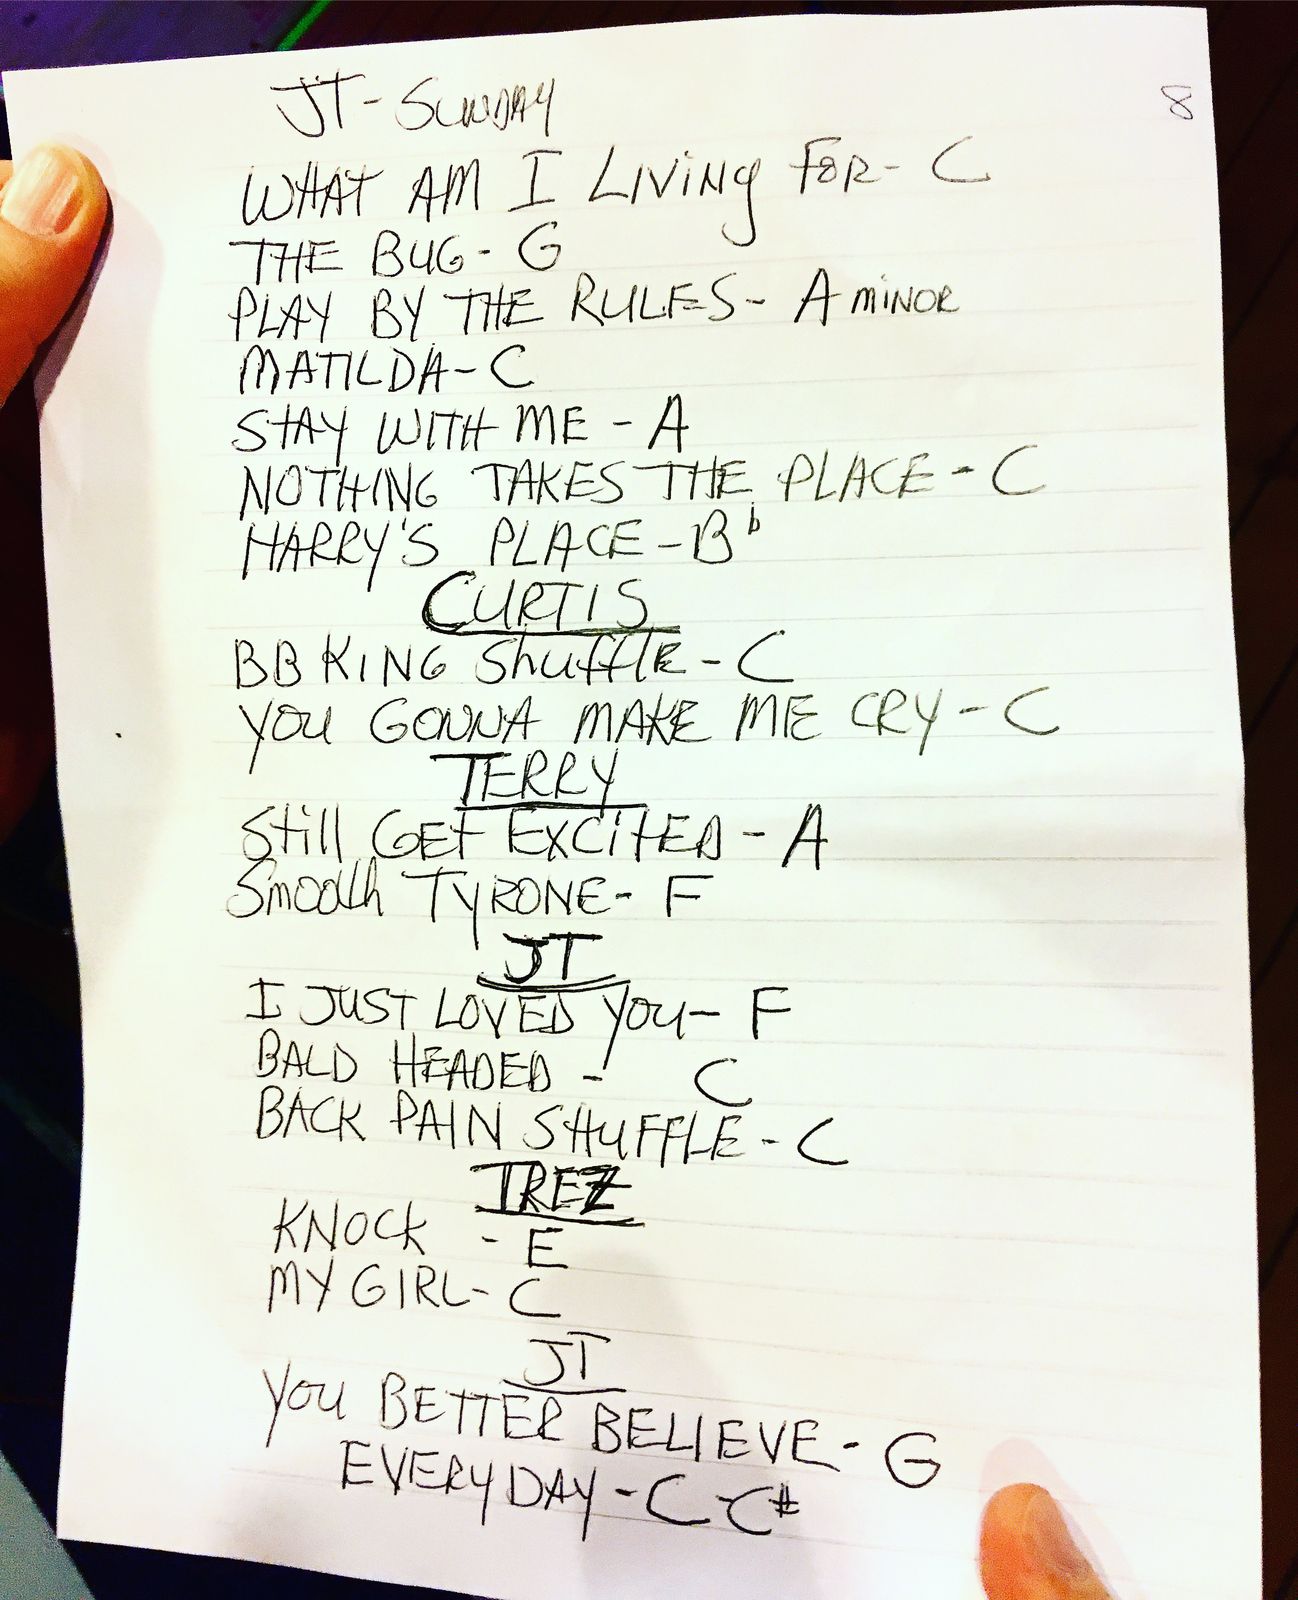 JT- SUNDAY
8
WHAT AM I LIVING FOR- C
THE BUG- G
PLAY BY THE RULES- A MINOR
MATILDA- C
STAY WITH ME - A
NOTHING TAKES THE PLACE - C
HARRY'S PLACE - Bb
CURTIS
BB KING Shuffle - C
YOU GONNA MAKE ME CRY - C
TERRY
Still GET EXCITED - A
Smooth TYRONE- F
JT
I JUST LOVED YOU- F
BALD HEADED - C
BACK PAIN SHUFFLE - C
TREZ
KNOCK - E
MY GIRL- C
JT
YOU BETTER BELIEVE - G
EVERYDAY - C - C#